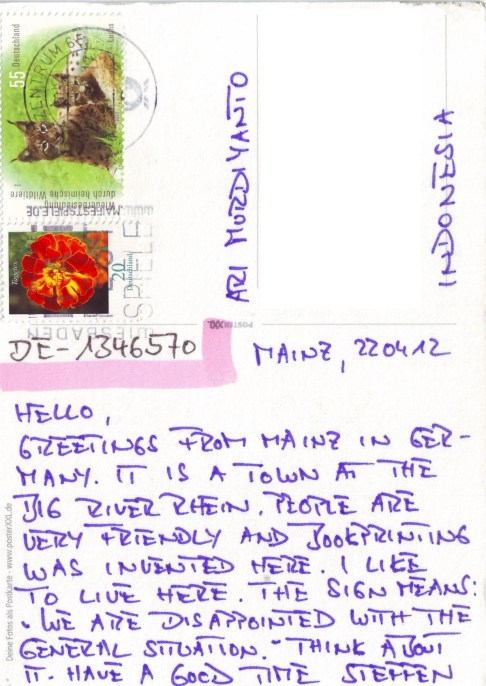 55 Deutschland
Luchs
ZENTRUM
Wiederbesiedelung
durch heimische Wildtiere
MAIFESTSPIELE.DE
Tagetes
20
Deutschland
SPIELE
WIESBADEN
ARI MURDIYANTO
INDONESIA
POSTERXXL
DE-1346570
MAINZ, 220412
HELLO,
GREETINGS FROM MAINZ IN GER-
MANY. IT IS A TOWN AT THE
BIG RIVER RHEIN. PEOPLE ARE
VERY FRIENDLY AND BOOKPRINTING
WAS INVENTED HERE. I LIKE
TO LIVE HERE. THE SIGN MEANS:
"WE ARE DISAPPOINTED WITH THE
GENERAL SITUATION." THINK ABOUT
IT. HAVE A GOOD TIME STEFFEN
Deine Fotos als Postkarte - www.posterXXL.de